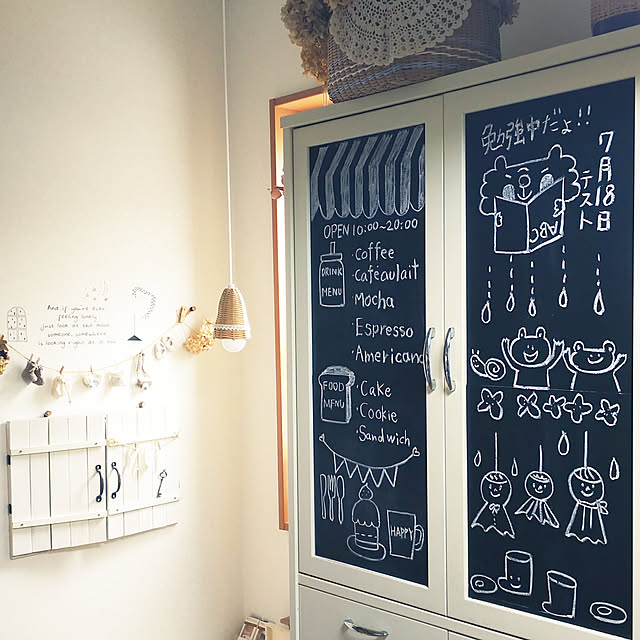 And if you're ever
feeling lonely
just look at the moon
someone, somewhere
is looking right at it too
OPEN 10:00~20:00
DRINK
MENU
・Coffee
・Cafeaulait
・Mocha
・Espresso
・Americano
FOOD
MENU
・Cake
・Cookie
・Sandwich
HAPPY
勉強中だよ!!
7月18日
テスト
ABC